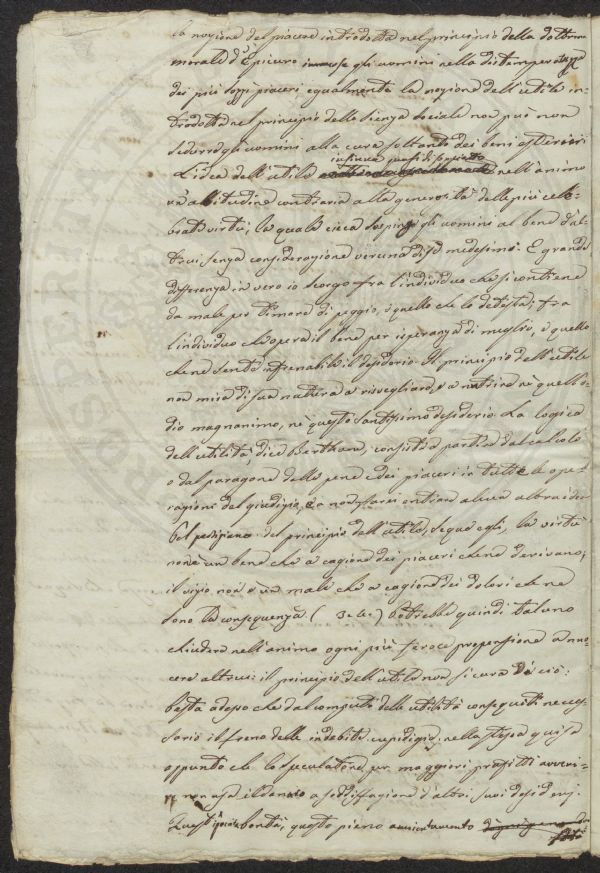 la nozione del piacere introdotta nel principio della dottrina
morale d'Epicuro immerse gli uomini nella distemperatezza
dei più sozzi piaceri egualmente la nozione dell'utile in-
trodotta nel principio della scienza sociale non può non
sedurre gli uomini alla cura soltanto dei beni esteriori
L'idea dell'utile
infinua quasi di soppiatto nell'animo
un'abitudine contraria alla generosità delle più cele-
brate virtù, la quale cieca sospinge gli uomini al bene d'al-
trui senza considerazione veruna di se medesimo. E grande
differenza in vero io scorgo fra l'individuo che si contiene
da male per timore di peggio, e quello che lo detesta; fra
l'individuo che opera il bene per isperanza di meglio, e quello
che ne sente infrenabile il desiderio. Il principio dell'utile
non mira di sua natura a risvegliare, o a nutrire nè quell'o-
dio magnanimo, nè questo santissimo desiderio. La logica
dell'utilità, dice Bentham, consiste a partire dal calcolo
o dal paragone delle pene e dei piaceri in tutte le ope-
razioni del giudizio, e a non farvi entrare alcun altra idea
Pel partigiano del principio dell'utile, segue egli, la virtù
non è un bene che a cagione dei piaceri che ne derivano;
il vizio non è un male che a cagione dei dolori che ne
sono la conseguenza. ( ) Potrebbe quindi taluno
chiudere nell'animo ogni più feroce propensione a nuo-
cere altrui: il principio dell'utile non si cura di ciò:
basta adesso che dal computo delle utilità conseguiti neces-
sario il freno delle indebite cupidigie, nella stessa guisa
appunto che lo speculatore, per maggiori profitti avveni-
re non usa il danaro a soddisfazione d'altri suoi desiderj.
Quest' bontà, questo pieno